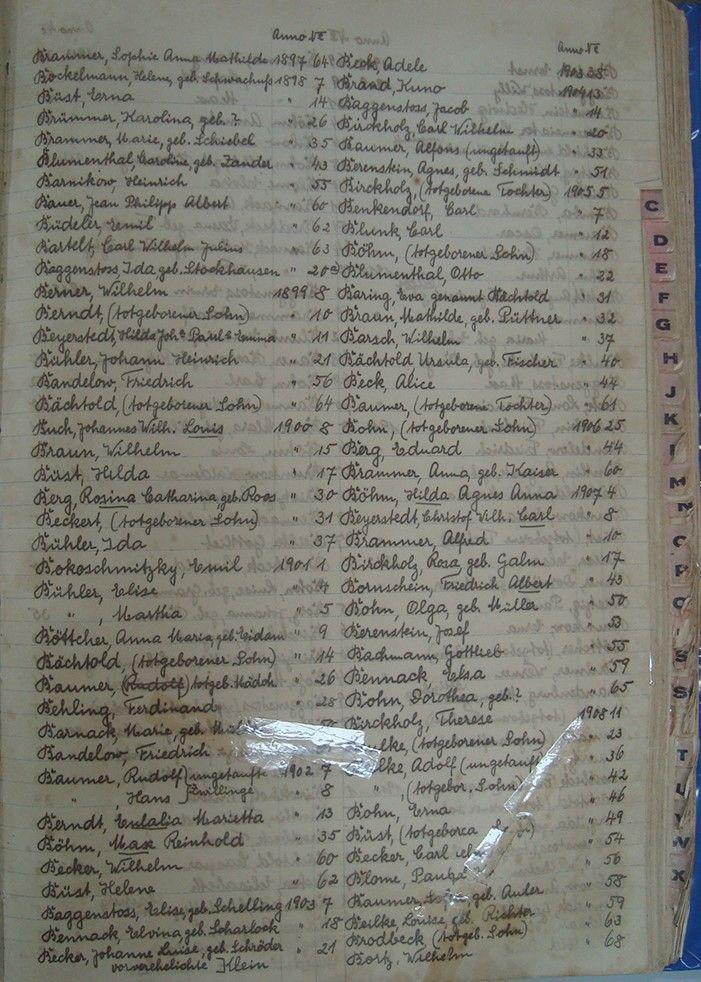 Anno №
Brammer, Sophie Anna Mathilde 1897 64
Bockelmann, Helene, geb. Schwachuß 1898 7
Büst, Erna " 14
Brümmer, Karolina, geb. ? " 26
Brammer, Marie, geb. Schiebel " 35
Blumenthal, Karoline, geb. Zander " 43
Barnikow, Heinrich " 55
Bauer, Jean Philipp Albert " 60
Büdeler, Emil " 62
Bartelt, Carl Wilhelm Julius " 63
Baggenstoss, Ida geb. Stockhausen " 20a
Berner, Wilhelm 1899 8
Berndt, (totgeborener Sohn) " 10
Beyerstedt, Hilda Joh. Paul & Emma " 11
Bühler, Johann Heinrich " 21
Bandelow, Friedrich " 56
Bächtold, (totgeborener Sohn) " 64
Buch, Johannes Wilh. Louis 1900 8
Braun, Wilhelm " 15
Büst, Hilda " 17
Berg, Rosina Catharina, geb. Roos " 30
Beckert, (totgeborener Sohn) " 31
Bühler, Ida " 37
Bokoschmitzky, Emil 1901 1
Bühler, Elise " 4
" , Martha " 5
Böttcher, Anna Maria, geb. Eidam " 9
Bächtold, (totgeborener Sohn) " 14
Baumer, (Rudolf) totgeb. Mädch. " 26
Behling, Ferdinand " 28
Barnack, Marie, geb.
Bandelow, Friedrich "
Baumer, Rudolf } ungetaufte 1902 7
" , Hans } Zwillinge " 8
Berndt, Eulalia Marietta " 13
Böhm, Max Reinhold " 35
Becker, Wilhelm " 60
Büst, Helene " 62
Baggenstoss, Elise, geb. Schelling 1903 7
Bennack, Elvina, geb. Scharlock " 18
Becker, Johanne Luise, geb. Schröder " 21
vorverehelichte Klein
Anno №
Beck, Adele 1903 38
Brand, Kuno 1904 13
Baggenstoss, Jacob " 14
Birckholz, Carl Wilhelm " 20
Baumer, Alfons (ungetauft) " 33
Berenstein, Agnes, geb. Schmidt " 51
Birckholz, (totgeborene Tochter) 1905 5
Benkendorf, Carl " 7
Blunk, Carl " 12
Böhm, (totgeborener Sohn) " 18
Blumenthal, Otto " 22
Baring, Eva genannt Bächtold " 31
Braun, Mathilde, geb. Püttner " 32
Barsch, Wilhelm " 37
Bächtold Ursula, geb. Fischer " 40
Beck, Alice " 44
Baumer, (totgeborene Tochter) " 61
Bohn, (totgeborener Sohn) 1906 25
Berg, Eduard " 44
Brammer, Anna, geb. Kaiser " 60
Böhm, Hilda Agnes Anna 1907 4
Beyerstedt, Christof Wilh. Carl " 8
Brammer, Alfred " 10
Birckholz, Rosa, geb. Galm " 17
Bornschein, Friedrich Albert " 43
Bohn, Olga, geb. Müller " 50
Berenstein, Josef " 53
Bachmann, Gottlieb " 55
Bennack, Elsa " 59
Bohn, Dorothea, geb. ? " 65
Birckholz, Therese 1908 11
(totgeborener Sohn) " 23
Adolf (ungetauft) " 36
" , (totgebor. Sohn) " 42
Bohn, Erna " 46
Büst, (totgebore " 49
Becker, Carl " 54
Blome, Paula " 56
Baumer, geb. Auler " 58
Beilke Louise, geb. Richter " 59
Brodbeck, (totgeb. Sohn) " 63
Bortz, Wilhelm " 68
C
D
E
F
G
H
J
K
L
M
N
O
P
Q
R
S
T
U
V
W
X